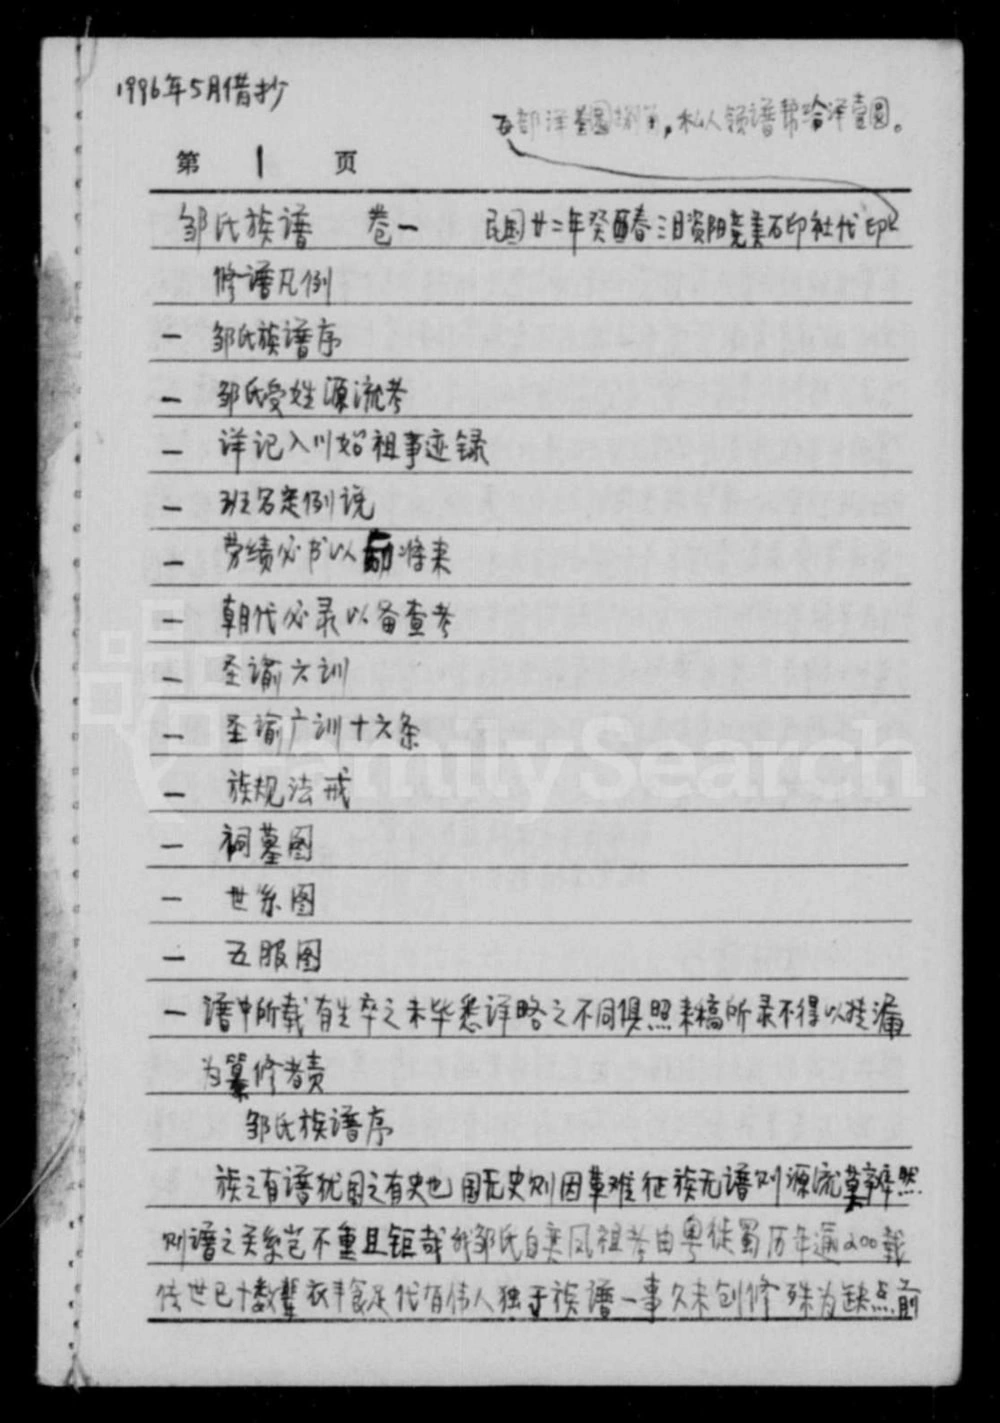 1996年5月借抄
部洋 圆捌角,私人领谱帮给洋壹圆。
第 1 页
邹氏族谱 卷一 民国廿二年癸酉春三月资阳竞美石印社代印
修谱凡例
一 邹氏族谱序
一 邹氏受姓源流考
一 详记入川始祖事迹录
一 班名定例说
一 劳绩必书以励将来
一 朝代必录以备查考
一 圣谕六训
一 圣谕广训十六条
一 族规法戒
一 祠墓图
一 世系图
一 五服图
一 谱中所载有生卒之未毕悉详略之不同俱照来稿所录不得以挂漏
为纂修者责
邹氏族谱序
族之有谱犹国之有史也国无史则因革难征族无谱则源流莫辨然
则谱之关系岂不重且钜哉我邹氏自奕凤祖考由粤徙蜀历年逾200载
传世已十数辈衣丰食足代有伟人独于族谱一事久未创修殊为缺点前
FamilySearch